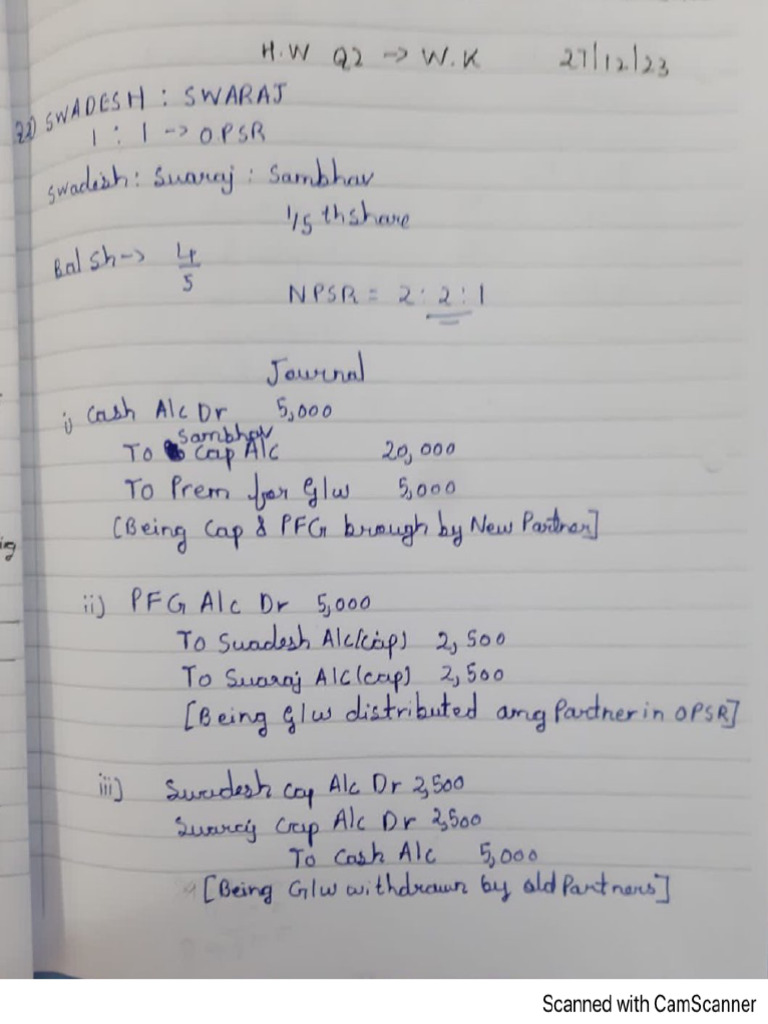 H.W Q2 -> W.K 27/12/23
22) SWADESH : SWARAJ
1 : 1 -> OPSR
Swadesh : Swaraj : Sambhav
1/5 th share
Bal Sh -> 4/5
NPSR = 2 : 2 : 1
Journal
i) Cash A/c Dr 5,000
To Sambhav Cap A/c 20,000
To Prem for G/w 5,000
[Being Cap & PFG brough by New Partner]
ii) PFG A/c Dr 5,000
To Swadesh A/c (cap) 2,500
To Swaraj A/c (cap) 2,500
[Being G/w distributed amg Partner in OPSR]
iii) Swadesh Cap A/c Dr 2,500
Swaraj Cap A/c Dr 2,500
To Cash A/c 5,000
[Being G/w withdrawn by old Partners]
Scanned with CamScanner